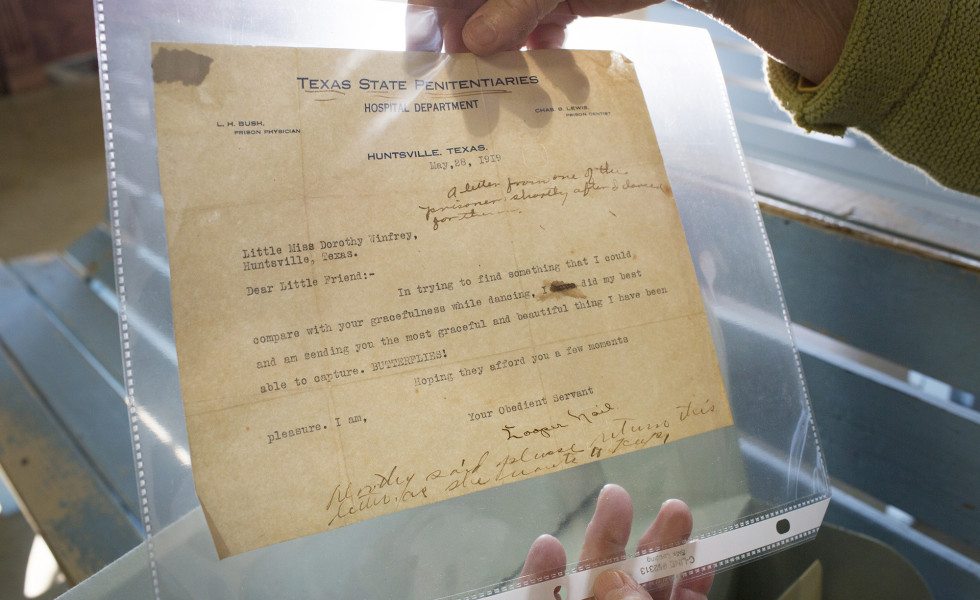 TEXAS STATE PENITENTIARIES
HOSPITAL DEPARTMENT
L. H. BUSH,
PRISON PHYSICIAN
CHAS. B. LEWIS,
PRISON DENTIST
HUNTSVILLE, TEXAS.
May, 28, 1919
A letter from one of the
prisoners shortly after I danced
for them.
Little Miss Dorothy Winfrey,
Huntsville, Texas.
Dear Little Friend:-
In trying to find something that I could
compare with your gracefulness while dancing, I did my best
and am sending you the most graceful and beautiful thing I have been
able to capture. BUTTERFLIES!
Hoping they afford you a few moments
pleasure. I am,
Your Obedient Servant
Cooper Nail.
Dorothy said please return this
letter as she wants to keep
C-LINE